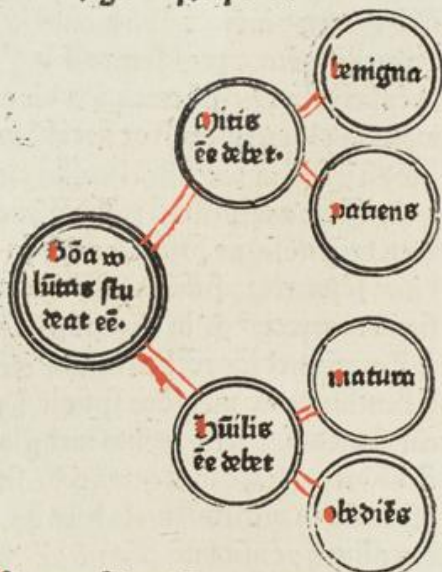 Bōa vo
lūtas stu
deat eē.
Mitis
ēe debet.
benigna
patiens
Hūilis
ēe debet
matura
obediēs